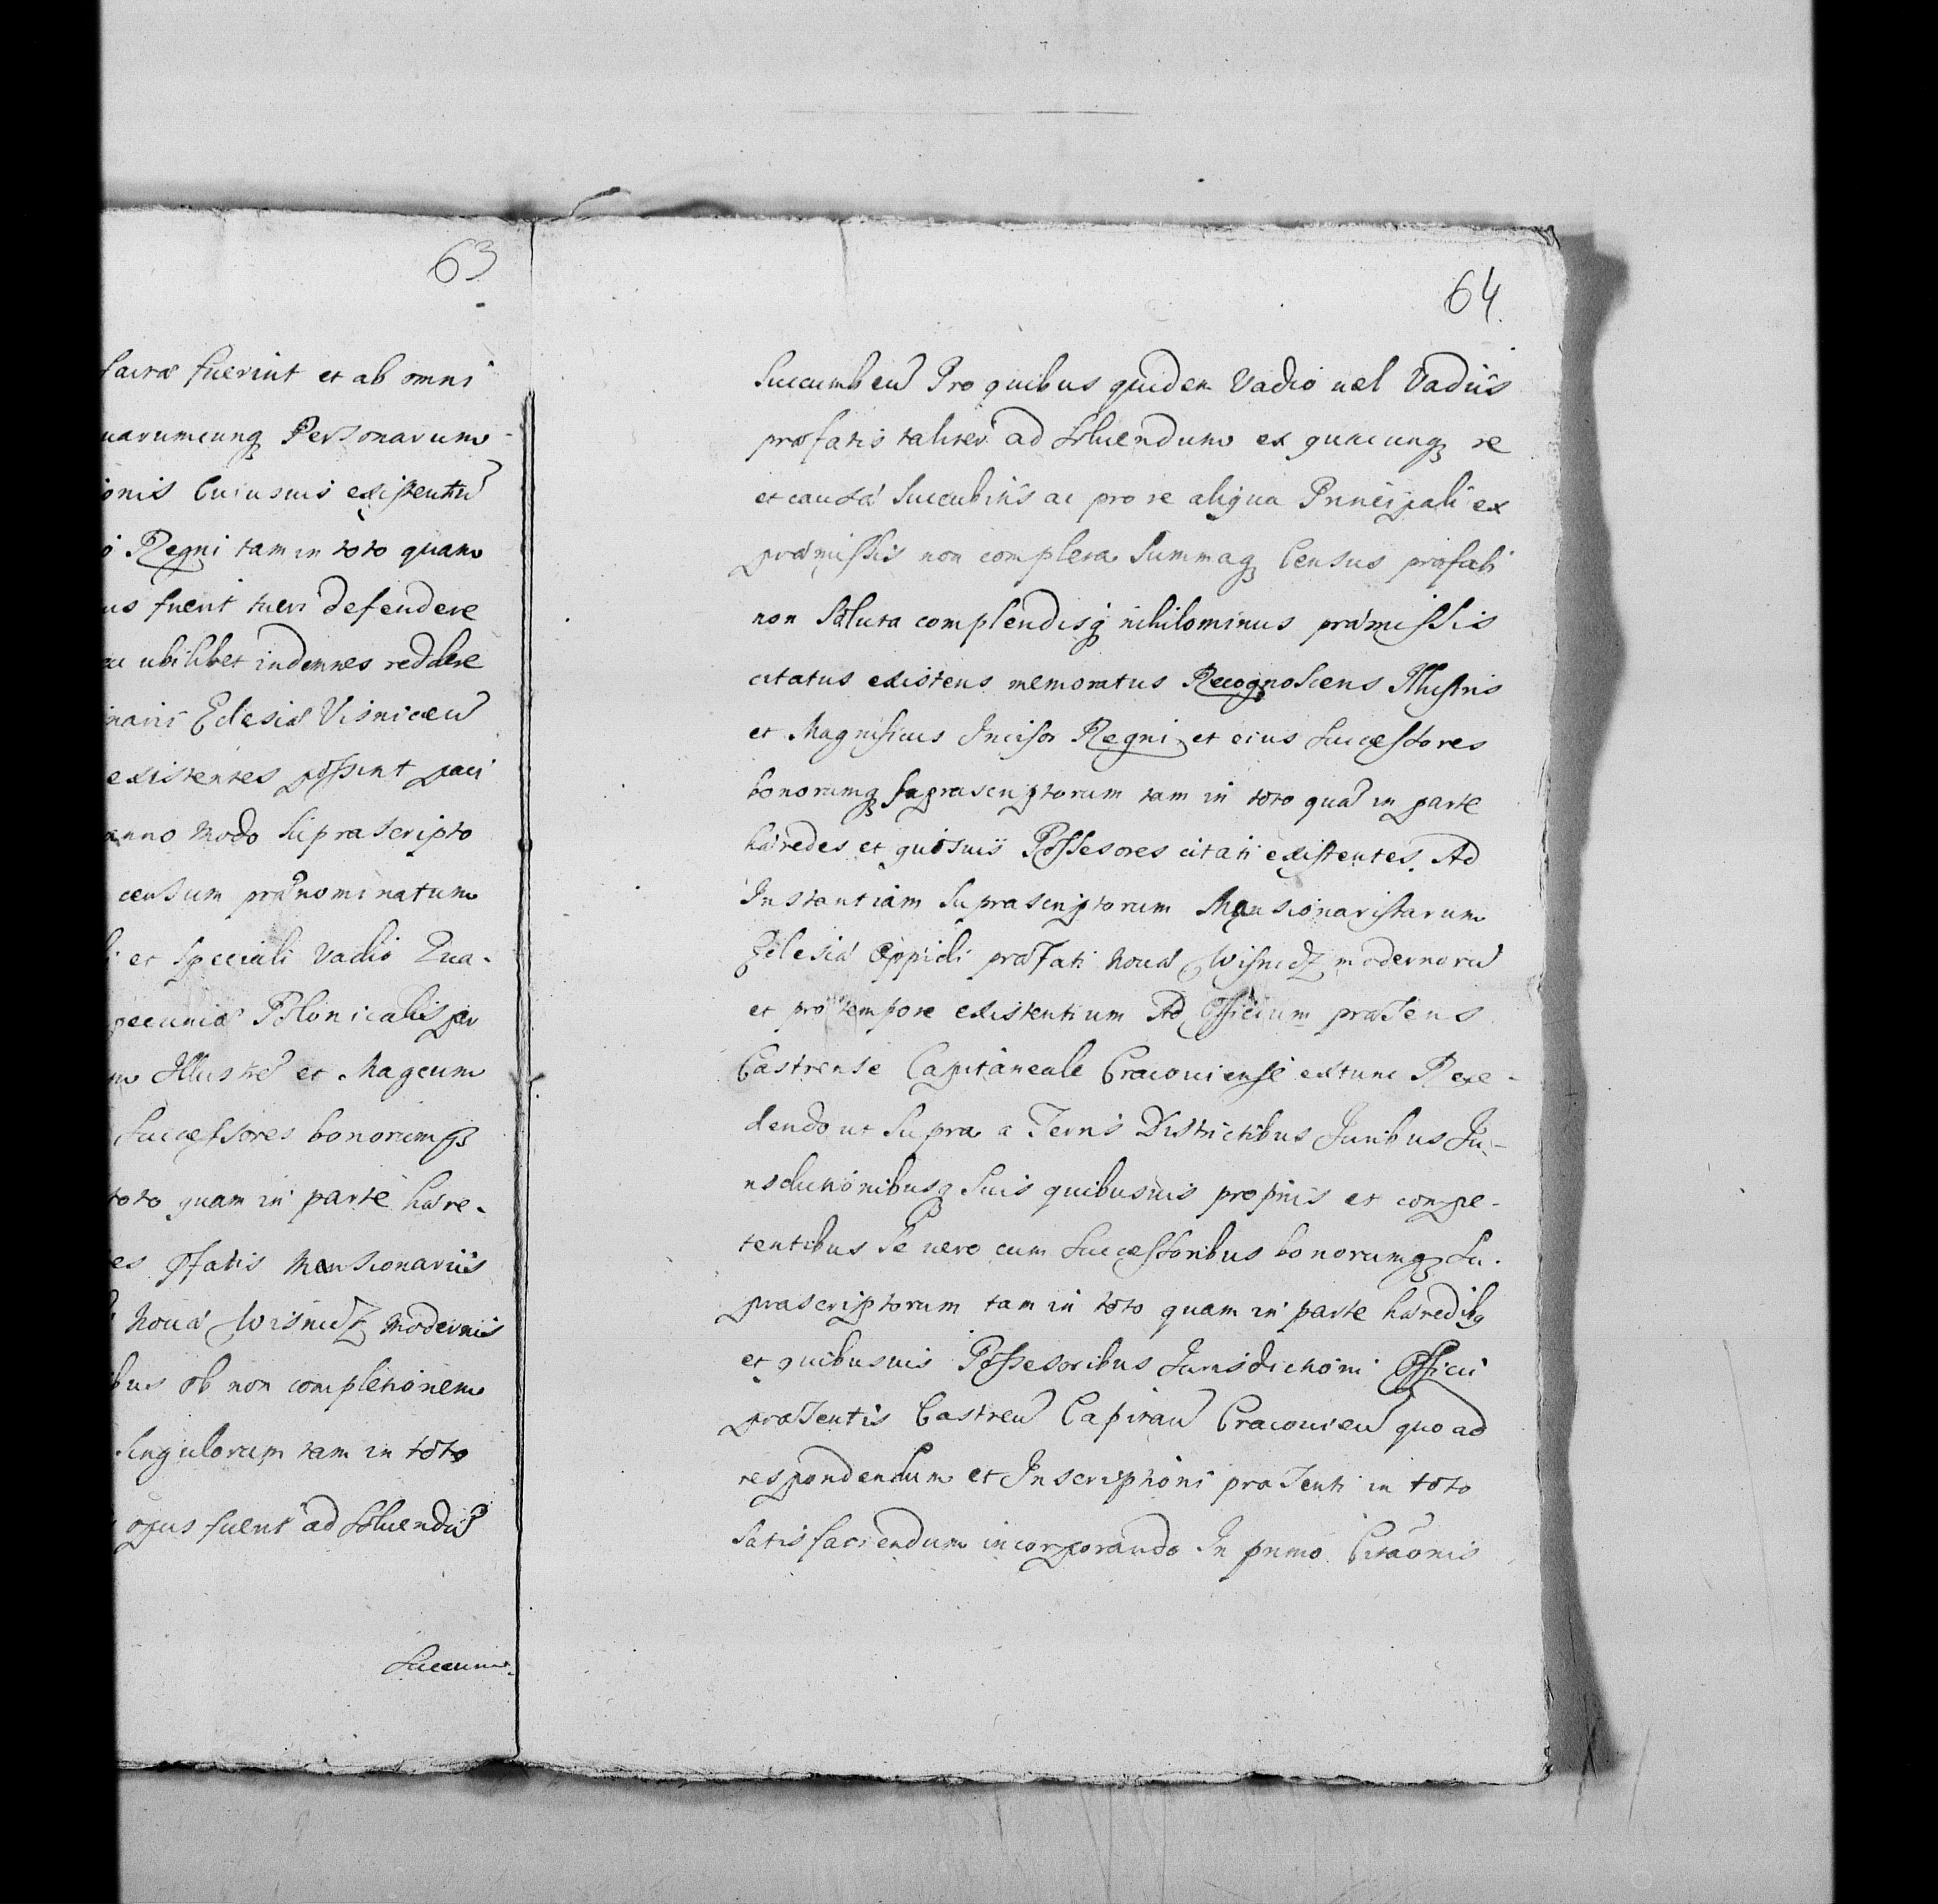 63
facta fuerint et ab omni
uarumcunq Personarum
onis Cuiusuis existentiu
o Regni tam in toto quam
us fuerit tueri defendere
ac ubilibet indemnes reddere
Eclesiæ Visnicen
existentes possint paci
anno modo supra scripto
censum prænominatum
et speciali Vadio Qua-
pecuniæ Polonicalis per
Illustre et Magcum
Successores bonorumq
toto quam in parte hære-
es pfatis Mansionariis
Nouæ Wisnicz modernis
bus ob non completionem
singulorum tam in toto
opus fuerit ad soluendu
Succum-
64
Succumben Pro quibus quidem Vadio uel Vadiis
præfatis taliter ad soluendum ex quacunq re
et causa Succubitis ac pro re aliqua Principali ex
præmissis non completa Summaq Census præfati
non Soluta complendisq nihilominus præmissis
citatus existens memoratus Recognoscens Illustris
et Magnificus Incisor Regni et eius Successores
bonorumq suprascriptorum tam in toto qua in parte
hæredes et quosuis Possesores citati existentes. Ad
Instantiam Suprascriptorum Mansionaristarum
Eclesiæ Oppidi præfati Nouæ Wisnicz modernoru
et pro tempore existentium Ad Officium præsens
Castrense Capitaneale Cracouiense extunc Rece-
dendo ut Supra a Terris Districtibus Juribus Ju-
risdictionibusq Suis quibusuis propriis et compe-
tentibus Se uero cum Successoribus bonorumq Su-
prascriptorum tam in toto quam in parte hæredibq
et quibusuis Possesoribus Jurisdictioni Officii
præsentis Castren Capitan Cracouien quo ad
respondendum et Inscriptioni præsenti in toto
Satisfaciendum incorporando In primo Citaonis